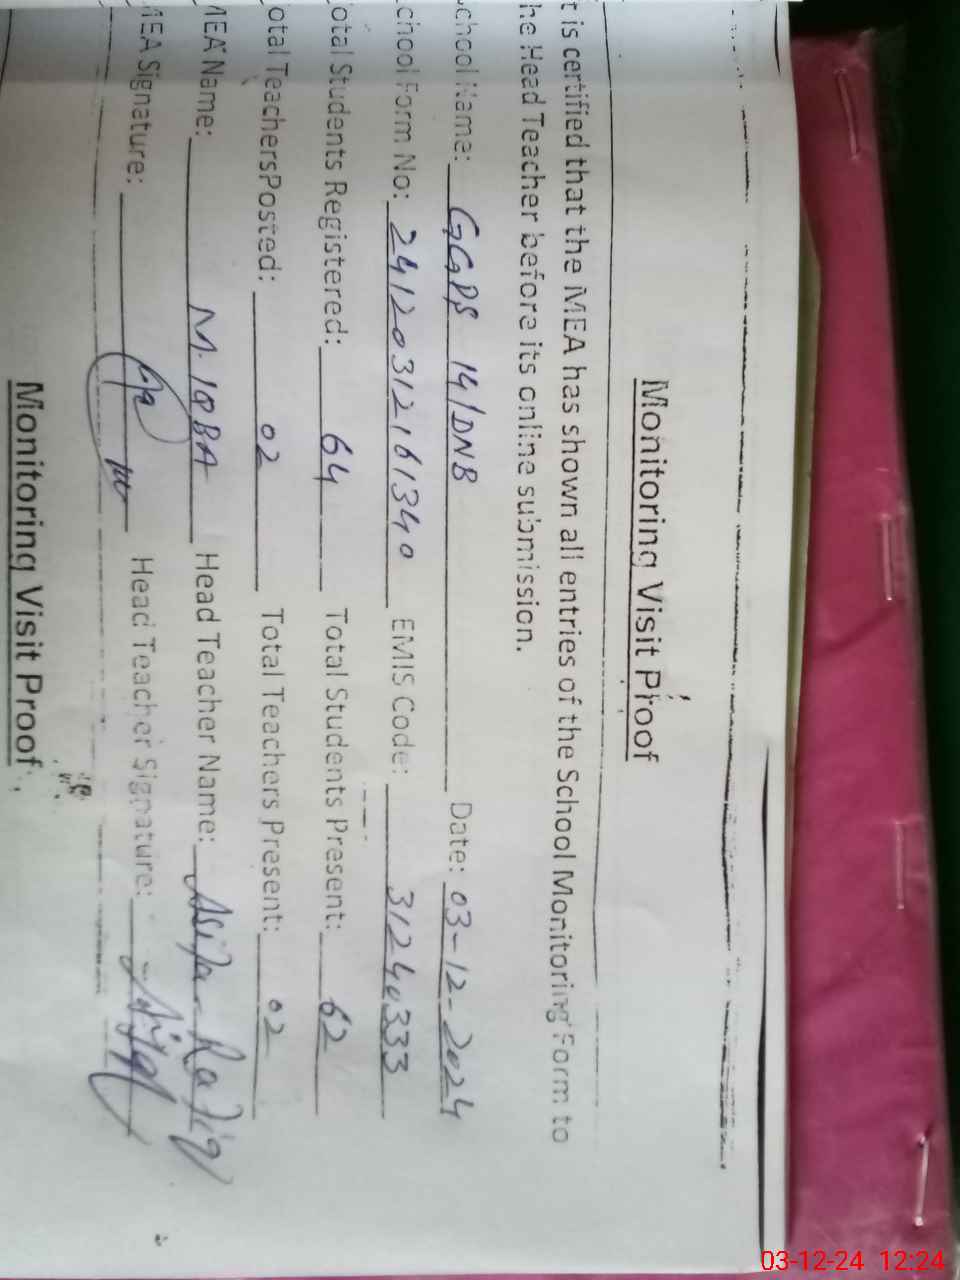 Monitoring Visit Proof
t is certified that the MEA has shown all entries of the School Monitoring Form to
he Head Teacher before its online submission.
chool Name: GGPS 14/DNB Date: 03-12-2024
chool Form No: 24120312161340 EMIS Code: 31240333
otal Students Registered: 64 Total Students Present: 62
otal TeachersPosted: 02 Total Teachers Present: 02
MEA Name: M. IQBA Head Teacher Name: Asifa Rafiq
MEA Signature: Head Teacher Signature:
Monitoring Visit Proof
03-12-24 12:24